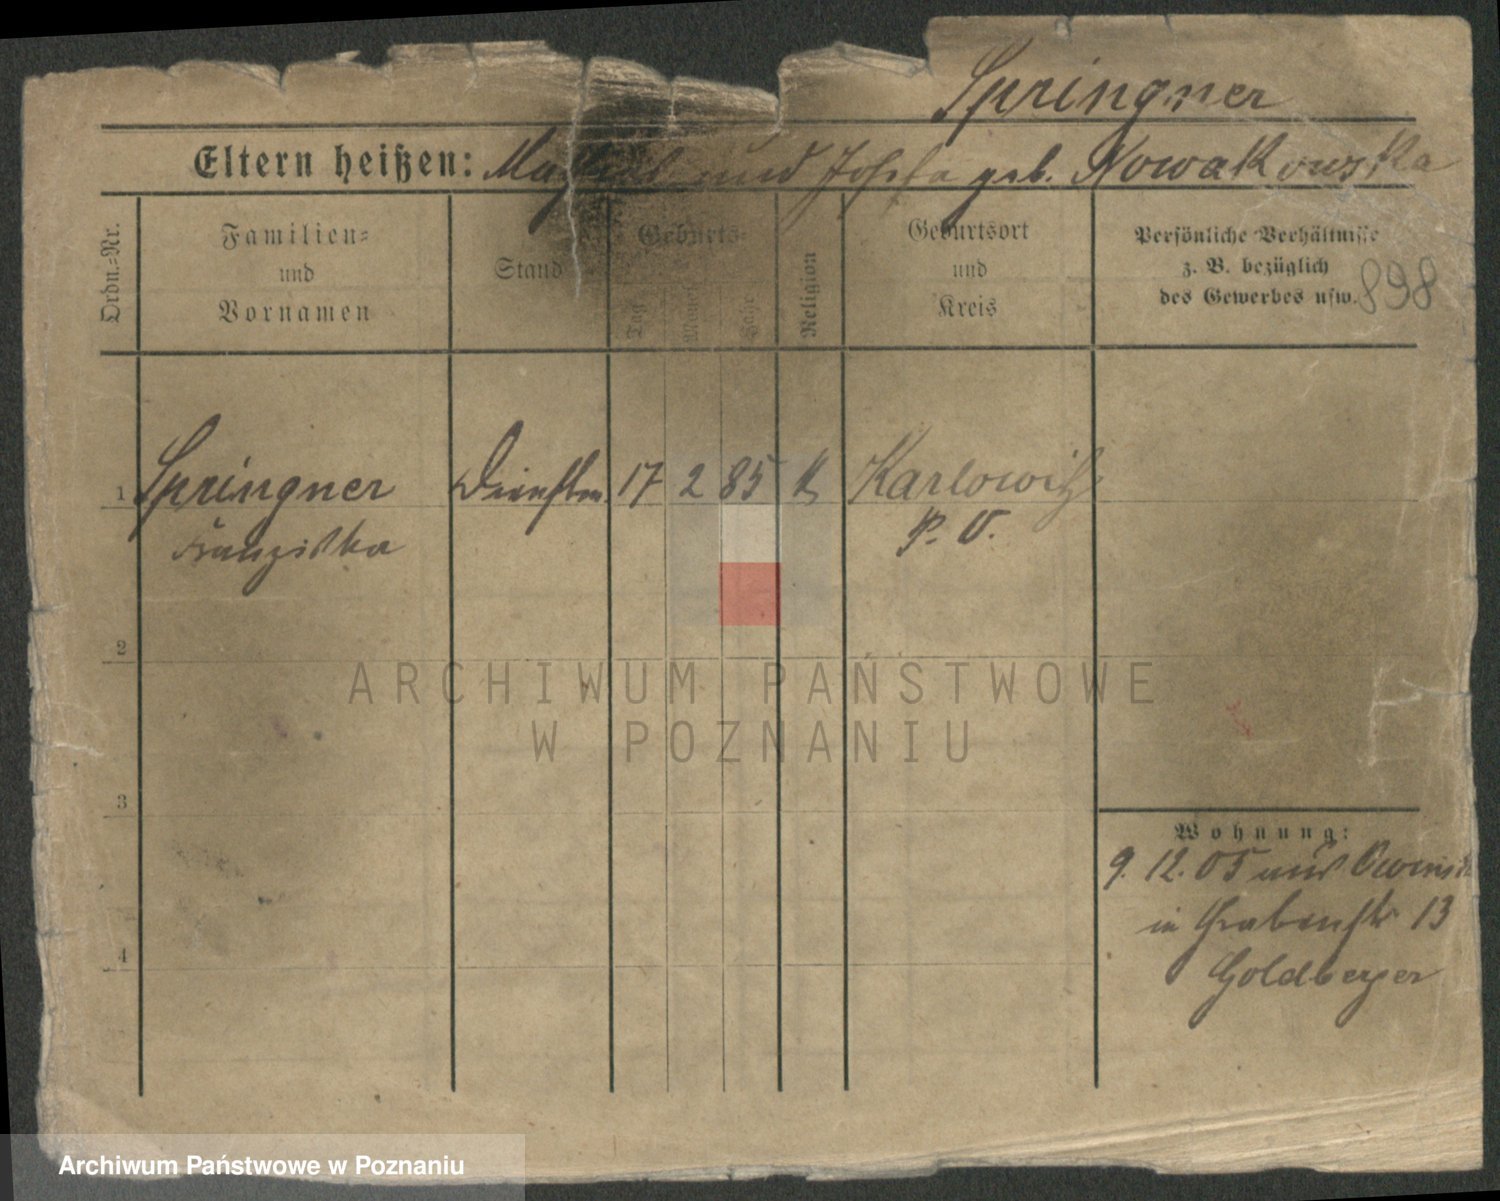 Springner
Eltern heißen: und Josefa geb. Nowakowska
Ordn.=Nr.
Familien=
und
Vornamen
Stand
Geburts=
Tag
Monat
Jahr
Religion
Geburtsort
und
Kreis
Persönliche Verhältnisse
z. B. bezüglich
des Gewerbes usw.
898
1 Springner Dienstm. 17 2 85 k Karlowitz
Franziska P. O.
2
ARCHIWUM PAŃSTWOWE
W POZNANIU
3
Wohnung:
9. 12. 05 aus
in Grabenstr 13
4
Goldberger
Archiwum Państwowe w Poznaniu